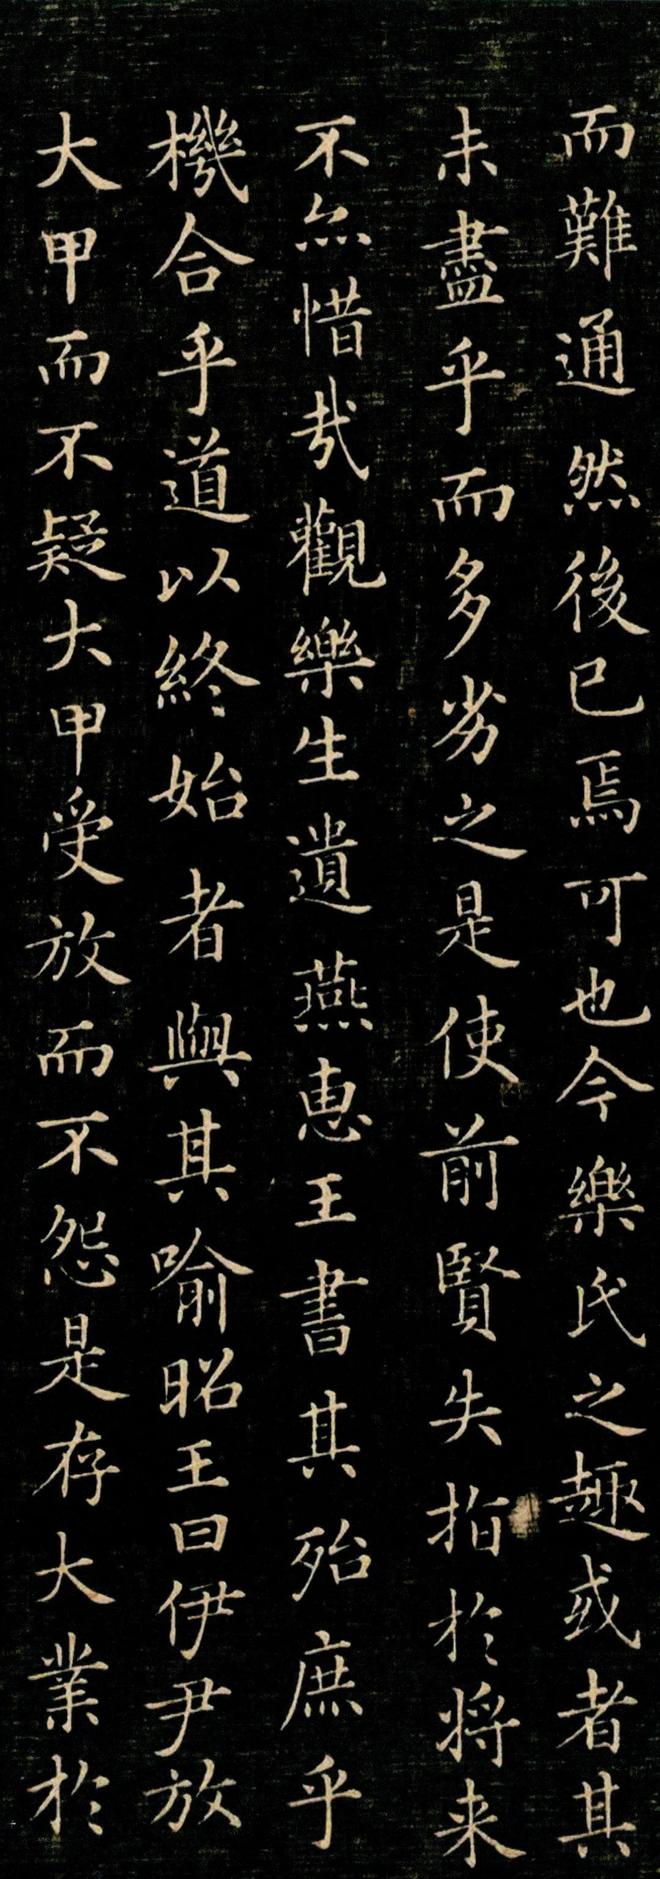 而難通然後已焉可也今樂氏之趣或者其
未盡乎而多劣之是使前賢失指於將来
不亦惜哉觀樂生遺燕惠王書其殆庶乎
機合乎道以終始者與其喻昭王曰伊尹放
大甲而不疑大甲受放而不怨是存大業於